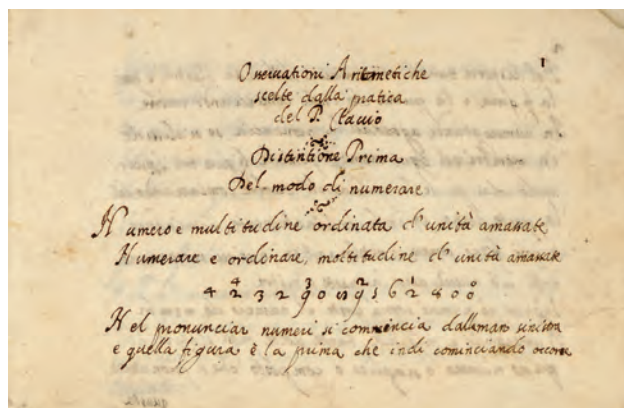 1
Osservationi Aritmetiche
scelte dalla pratica
del P. Clavio
Distintione Prima
Del modo di numerare
Numero e multitudine ordinata d'unità amassate
Numerare e ordinare, moltitudine d'unità amassate
4 3 2 1
4 2 3 2 9 0 5 9 5 6 2 8 0 0
Nel pronunciar numeri si commincia dalla mano sinistra
e quella figura è la prima che indi cominciando occorre